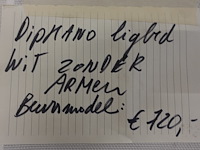 DipMANO ligbed
WIT ZONDER
ARMEN
Beursmodel:
€ 120,-